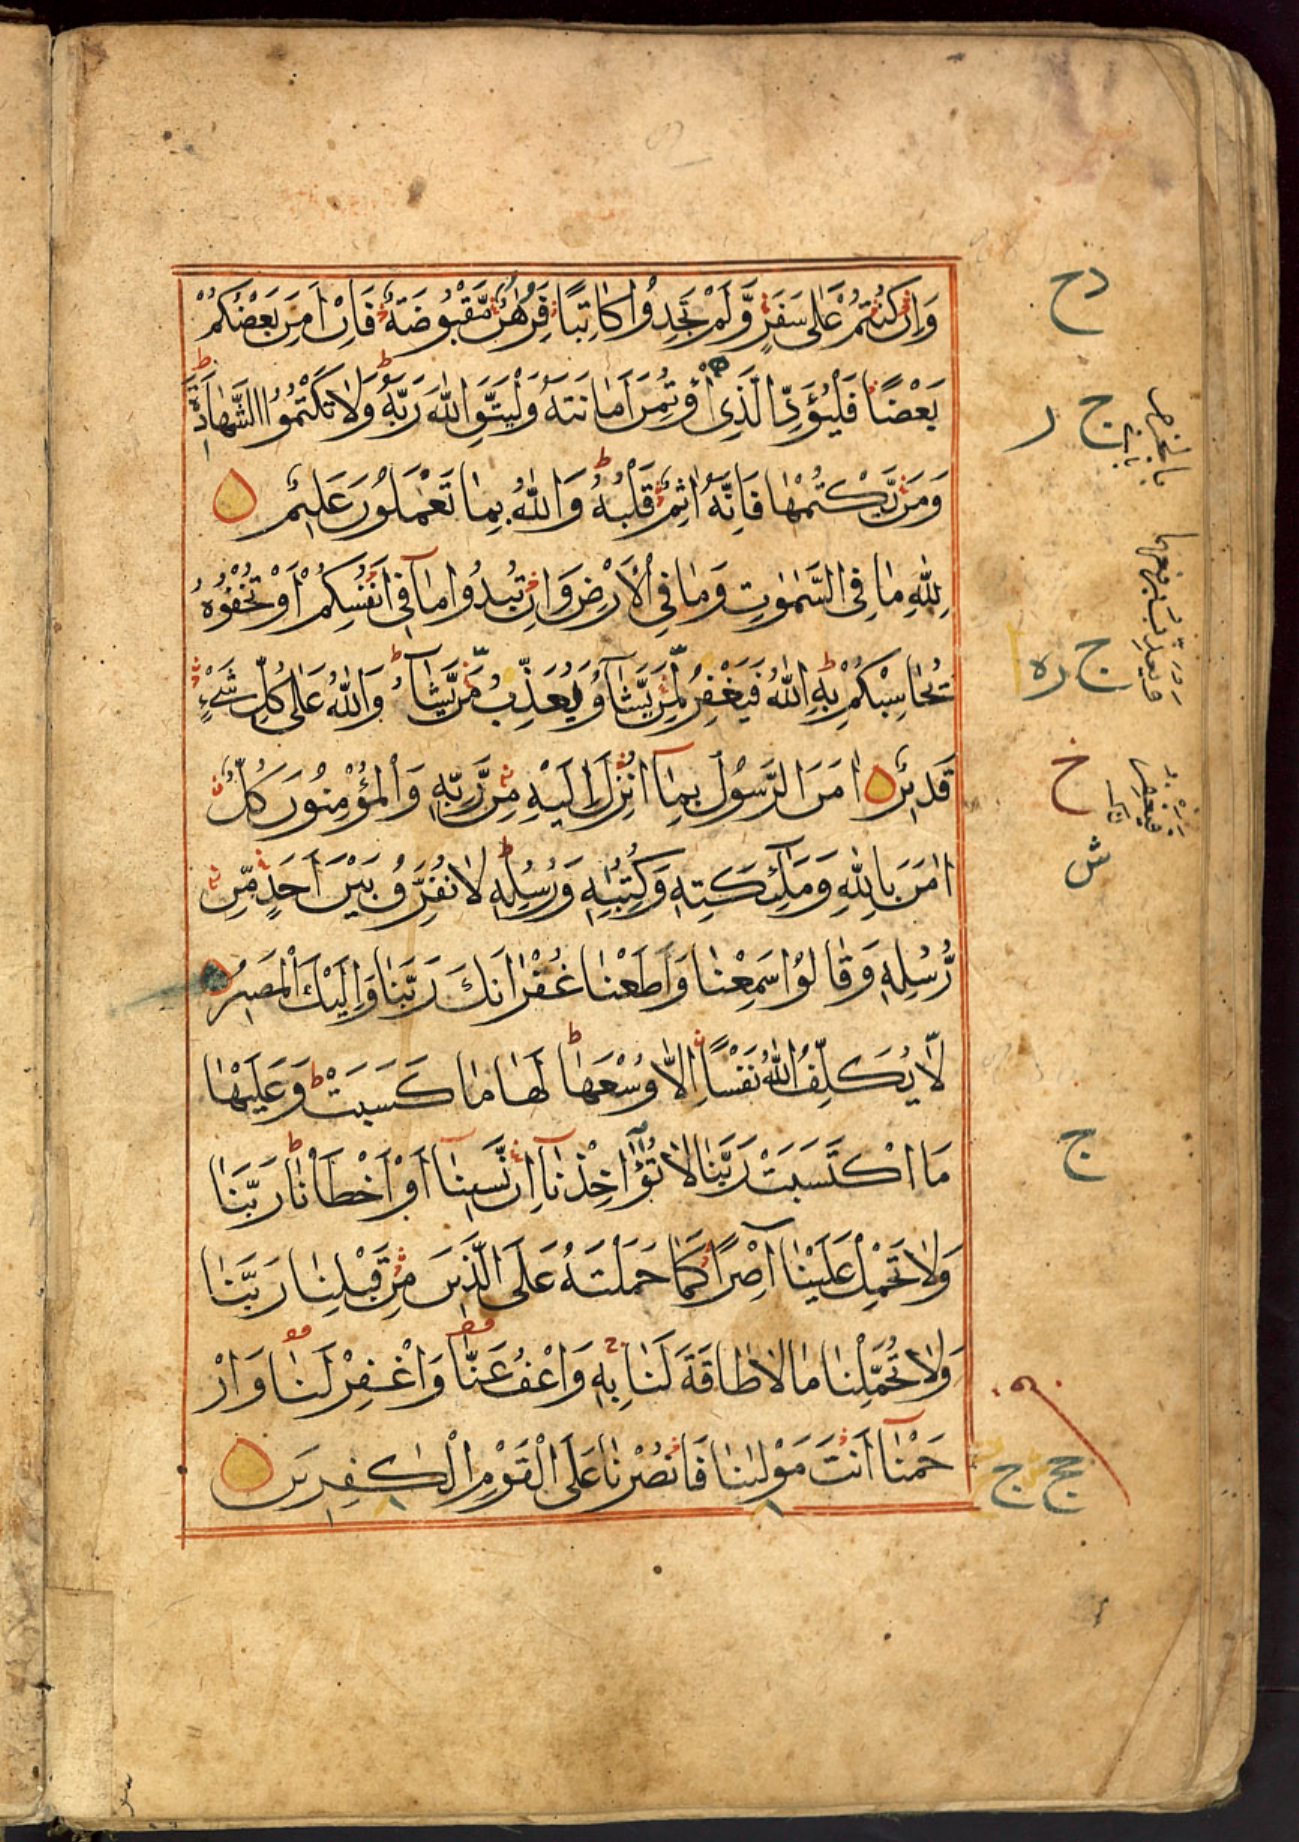 وَاِنْ كُنْتُمْ عَلٰى سَفَرٍ وَّلَمْ تَجِدُوْا كَاتِبًا فَرِهٰنٌ مَّقْبُوْضَةٌ فَاِنْ اَمِنَ بَعْضُكُمْ
بَعْضًا فَلْيُؤَدِّ الَّذِى اؤْتُمِنَ اَمَانَتَهُ وَلْيَتَّقِ اللّٰهَ رَبَّهُ وَلَا تَكْتُمُوا الشَّهَادَةَ
وَمَنْ يَّكْتُمْهَا فَاِنَّهُ اٰثِمٌ قَلْبُهُ وَاللّٰهُ بِمَا تَعْمَلُوْنَ عَلِيْمٌ
لِلّٰهِ مَا فِى السَّمٰوٰتِ وَمَا فِى الْاَرْضِ وَاِنْ تُبْدُوْا مَا فِىْ اَنْفُسِكُمْ اَوْ تُخْفُوْهُ
يُحَاسِبْكُمْ بِهِ اللّٰهُ فَيَغْفِرُ لِمَنْ يَّشَآءُ وَيُعَذِّبُ مَنْ يَّشَآءُ وَاللّٰهُ عَلٰى كُلِّ شَىْءٍ
قَدِيْرٌ اٰمَنَ الرَّسُوْلُ بِمَآ اُنْزِلَ اِلَيْهِ مِنْ رَّبِّهِ وَالْمُؤْمِنُوْنَ كُلٌّ
اٰمَنَ بِاللّٰهِ وَمَلٰٓئِكَتِهِ وَكُتُبِهِ وَرُسُلِهِ لَا نُفَرِّقُ بَيْنَ اَحَدٍ مِّنْ
رُّسُلِهِ وَقَالُوْا سَمِعْنَا وَاَطَعْنَا غُفْرَانَكَ رَبَّنَا وَاِلَيْكَ الْمَصِيْرُ
لَا يُكَلِّفُ اللّٰهُ نَفْسًا اِلَّا وُسْعَهَا لَهَا مَا كَسَبَتْ وَعَلَيْهَا
مَا اكْتَسَبَتْ رَبَّنَا لَا تُؤَاخِذْنَآ اِنْ نَّسِيْنَآ اَوْ اَخْطَاْنَا رَبَّنَا
وَلَا تَحْمِلْ عَلَيْنَآ اِصْرًا كَمَا حَمَلْتَهُ عَلَى الَّذِيْنَ مِنْ قَبْلِنَا رَبَّنَا
وَلَا تُحَمِّلْنَا مَا لَا طَاقَةَ لَنَا بِهِ وَاعْفُ عَنَّا وَاغْفِرْ لَنَا وَارْ
حَمْنَآ اَنْتَ مَوْلٰىنَا فَانْصُرْنَا عَلَى الْقَوْمِ الْكٰفِرِيْنَ
دح
ج ر
ج ره
خ
ش
ج
ج ج